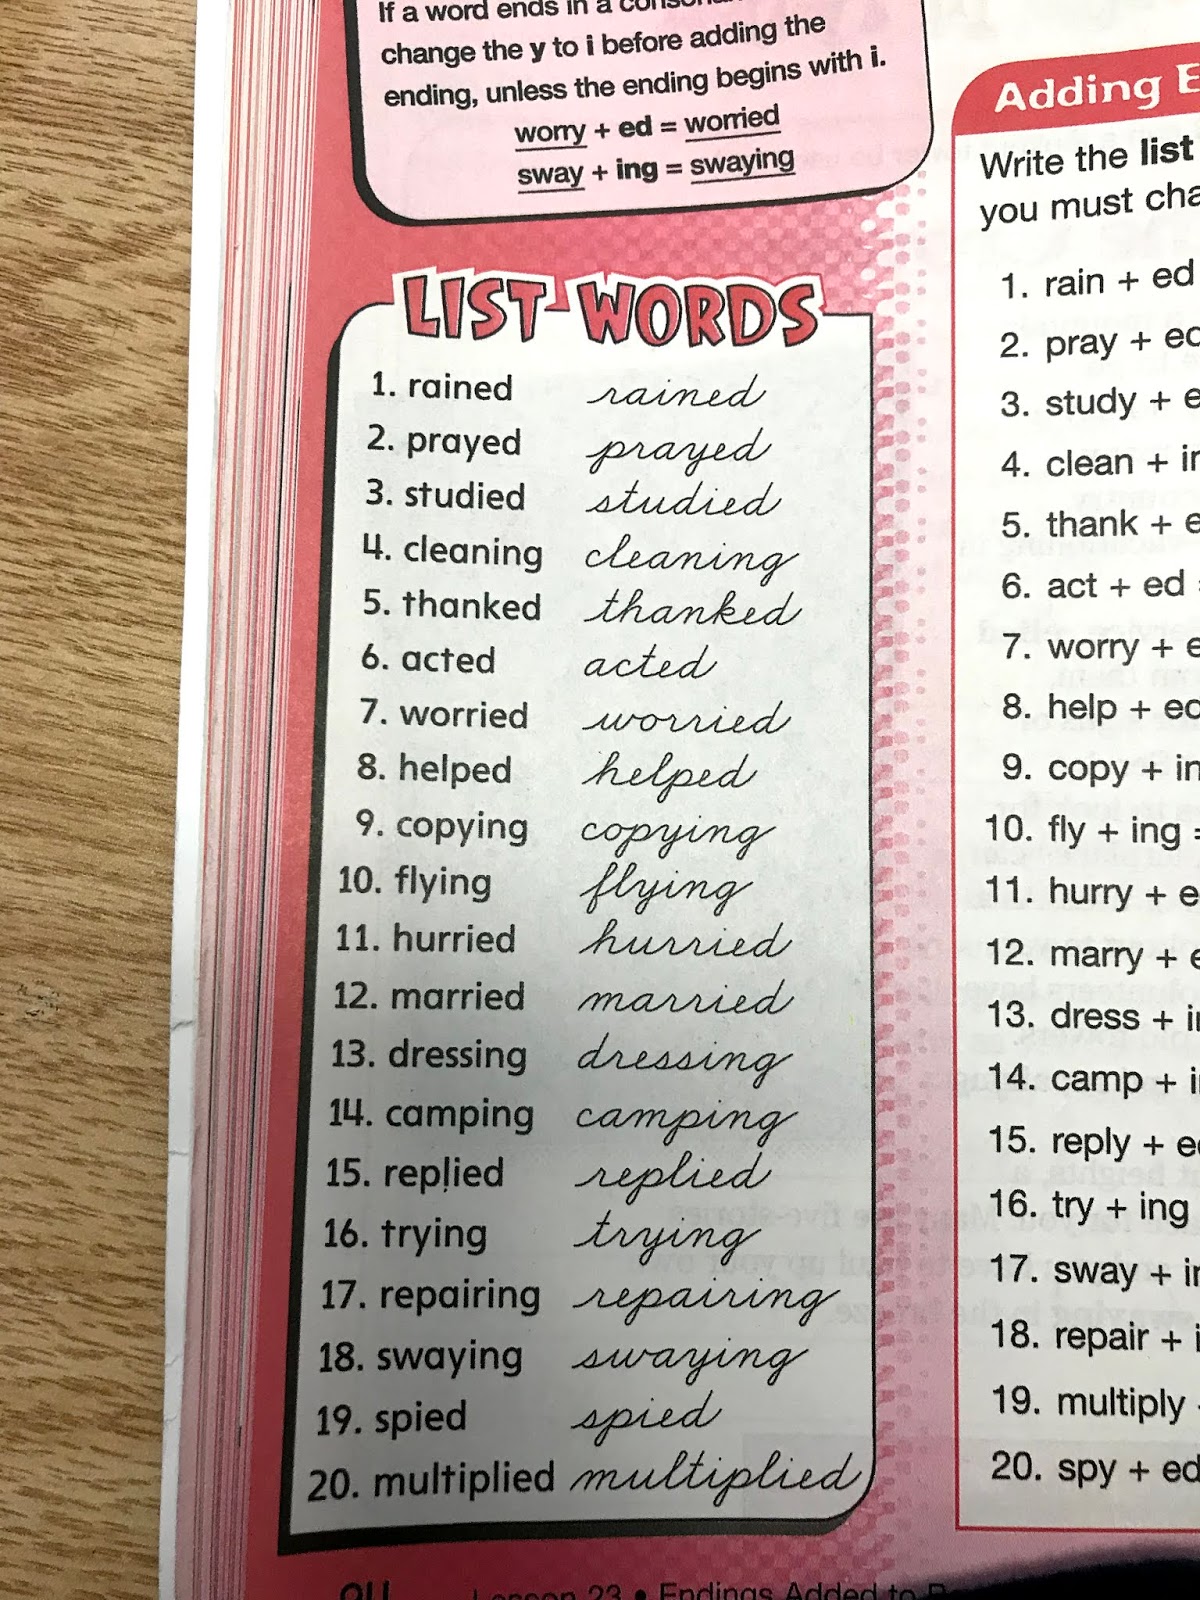 If a word ends in a
change the y to i before adding the
ending, unless the ending begins with i.
worry + ed = worried
sway + ing = swaying
LIST WORDS
1. rained rained
2. prayed prayed
3. studied studied
4. cleaning cleaning
5. thanked thanked
6. acted acted
7. worried worried
8. helped helped
9. copying copying
10. flying flying
11. hurried hurried
12. married married
13. dressing dressing
14. camping camping
15. replied replied
16. trying trying
17. repairing repairing
18. swaying swaying
19. spied spied
20. multiplied multiplied
Lesson 23 • Endings Added to
Adding E
Write the list
you must cha
1. rain + ed
2. pray + ed
3. study + e
4. clean + in
5. thank + e
6. act + ed =
7. worry + e
8. help + ed
9. copy + in
10. fly + ing =
11. hurry + e
12. marry + e
13. dress + i
14. camp + i
15. reply + e
16. try + ing
17. sway + in
18. repair + i
19. multiply
20. spy + ed